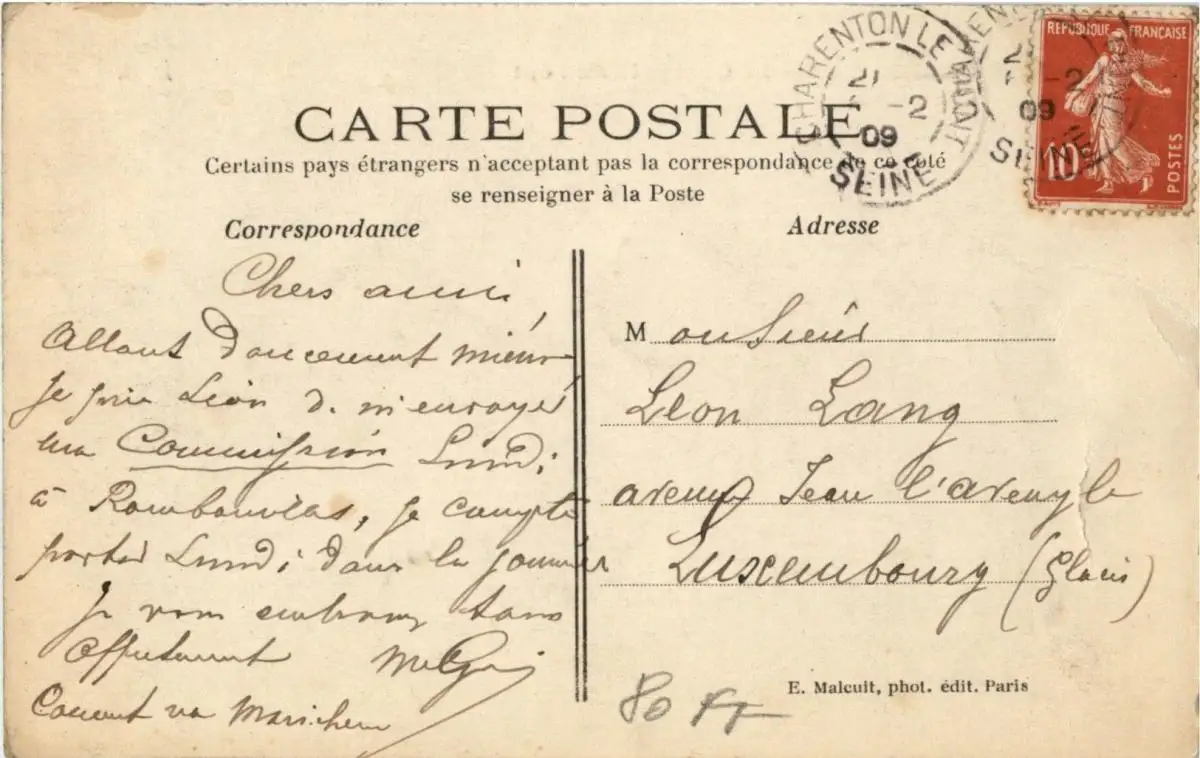 CHARENTON LE PONT
2 -2
09
SEINE
CHARENT
2 -2
09
SEINE
REPUBLIQUE FRANÇAISE
10
POSTES
CARTE POSTALE
Certains pays étrangers n'acceptant pas la correspondance de ce côté
se renseigner à la Poste
Correspondance
Adresse
Chers amis
Allant doucement mieux
Je prie Léon d. m'envoyer
ma Commission Lundi
à Rambouillet, je compte
partir Lundi dans la journée
Je vous embrasse tous
Affectueusement
Comment va
Monsieur
Leon Lang
avenue Jean l'aveugle
Luxembourg (Glacis)
E. Malcuit, phot. édit. Paris
80 Fr